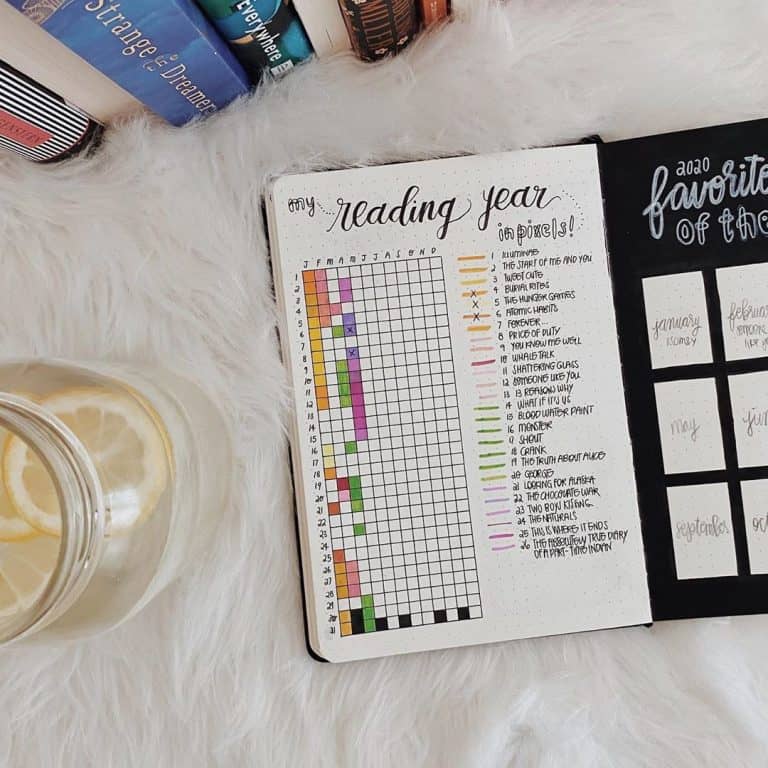 Strange the Dreamer
Everywhere
my reading year
in pixels!
J F M A M J J A S O N D
1
2
3
4
5
6
7
8
9
10
11
12
13
14
15
16
17
18
19
20
21
22
23
24
25
26
27
28
29
30
31
1 ILLUMINAE
2 THE START OF ME AND YOU
3 TWEET CUTE
4 BURIAL RITES
5 THE HUNGER GAMES
6 ATOMIC HABITS
7 FOREVER...
8 PRICE OF DUTY
9 YOU KNOW ME WELL
10 WHALE TALK
11 SHATTERING GLASS
12 SOMEONE LIKE YOU
13 13 REASONS WHY
14 WHAT IF IT'S US
15 BLOOD WATER PAINT
16 MONSTER
9 SHOUT
18 CRANK
19 THE TRUTH ABOUT ALICE
20 GEORGE
21 LOOKING FOR ALASKA
22 THE CHOCOLATE WAR
23 TWO BOYS KISSING
24 THE NATURALS
25 THIS IS WHERE IT ENDS
26 THE ABSOLUTELY TRUE DIARY
OF A PART-TIME INDIAN
2020
favorite
OF the
january
february
may
september